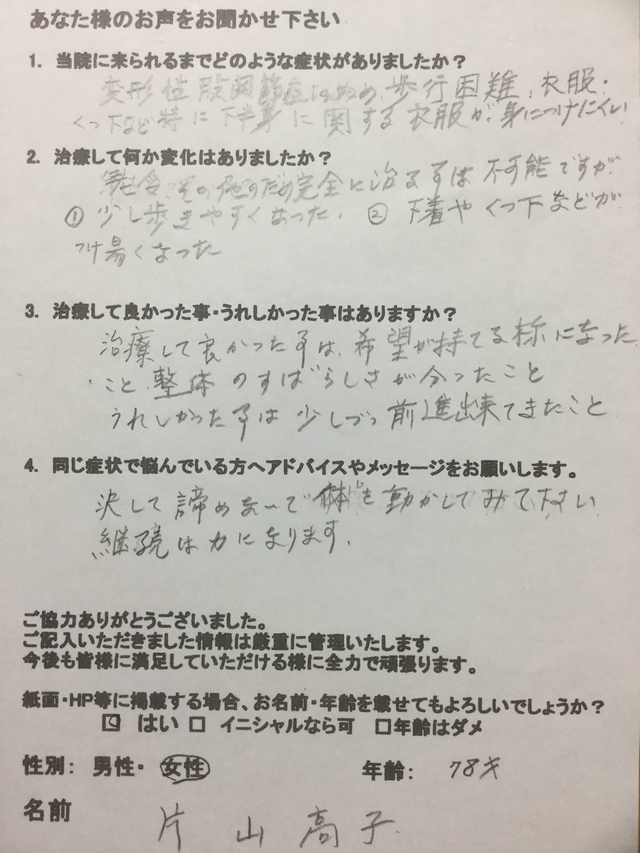 あなた様のお声をお聞かせ下さい
1. 当院に来られるまでどのような症状がありましたか？
変形性股関節症のため、歩行困難、衣服・
くつ下など特に下半身に関する衣服が身につけにくい
2. 治療して何か変化はありましたか？
完全に治る事は不可能ですが
① 少し歩きやすくなった。 ② 下着やくつ下などが
つけ易くなった
3. 治療して良かった事・うれしかった事はありますか？
治療して良かった事は、希望が持てる様になった
こと、整体のすばらしさが分ったこと
うれしかった事は少しづつ前進出来てきたこと
4. 同じ症状で悩んでいる方へアドバイスやメッセージをお願いします。
決して諦めないで体を動かしてみて下さい
継続は力になります。
ご協力ありがとうございました。
ご記入いただきました情報は厳重に管理いたします。
今後も皆様に満足していただける様に全力で頑張ります。
紙面・HP等に掲載する場合、お名前・年齢を載せてもよろしいでしょうか？
☑ はい □ イニシャルなら可 □年齢はダメ
性別： 男性・ 女性 年齢： 78才
名前 片山高子